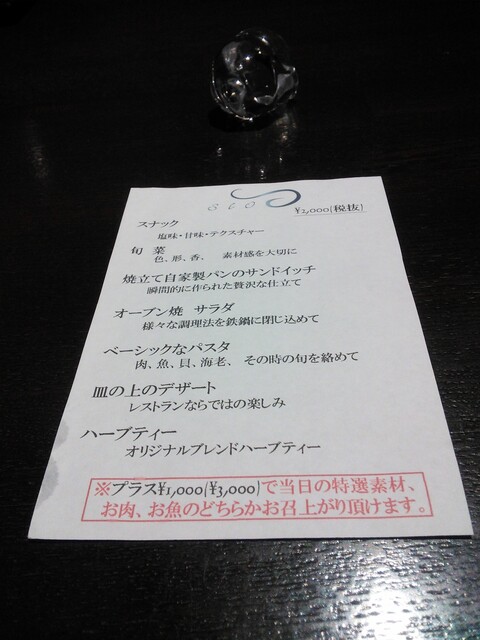 ¥2,000(税抜)
スナック
塩味・甘味・テクスチャー
旬 菜
色、形、香、 素材感を大切に
焼立て自家製パンのサンドイッチ
瞬間的に作られた贅沢な仕立て
オーブン焼 サラダ
様々な調理法を鉄鍋に閉じ込めて
ベーシックなパスタ
肉、魚、貝、海老、 その時の旬を絡めて
皿の上のデザート
レストランならではの楽しみ
ハーブティー
オリジナルブレンドハーブティー
※プラス¥1,000(¥3,000)で当日の特選素材、
お肉、お魚のどちらかお召上がり頂けます。